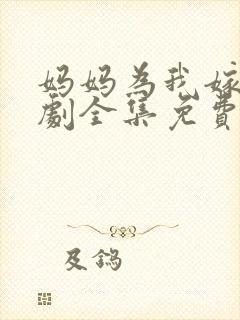 妈妈为我嫁
劇全集免費
及鎢